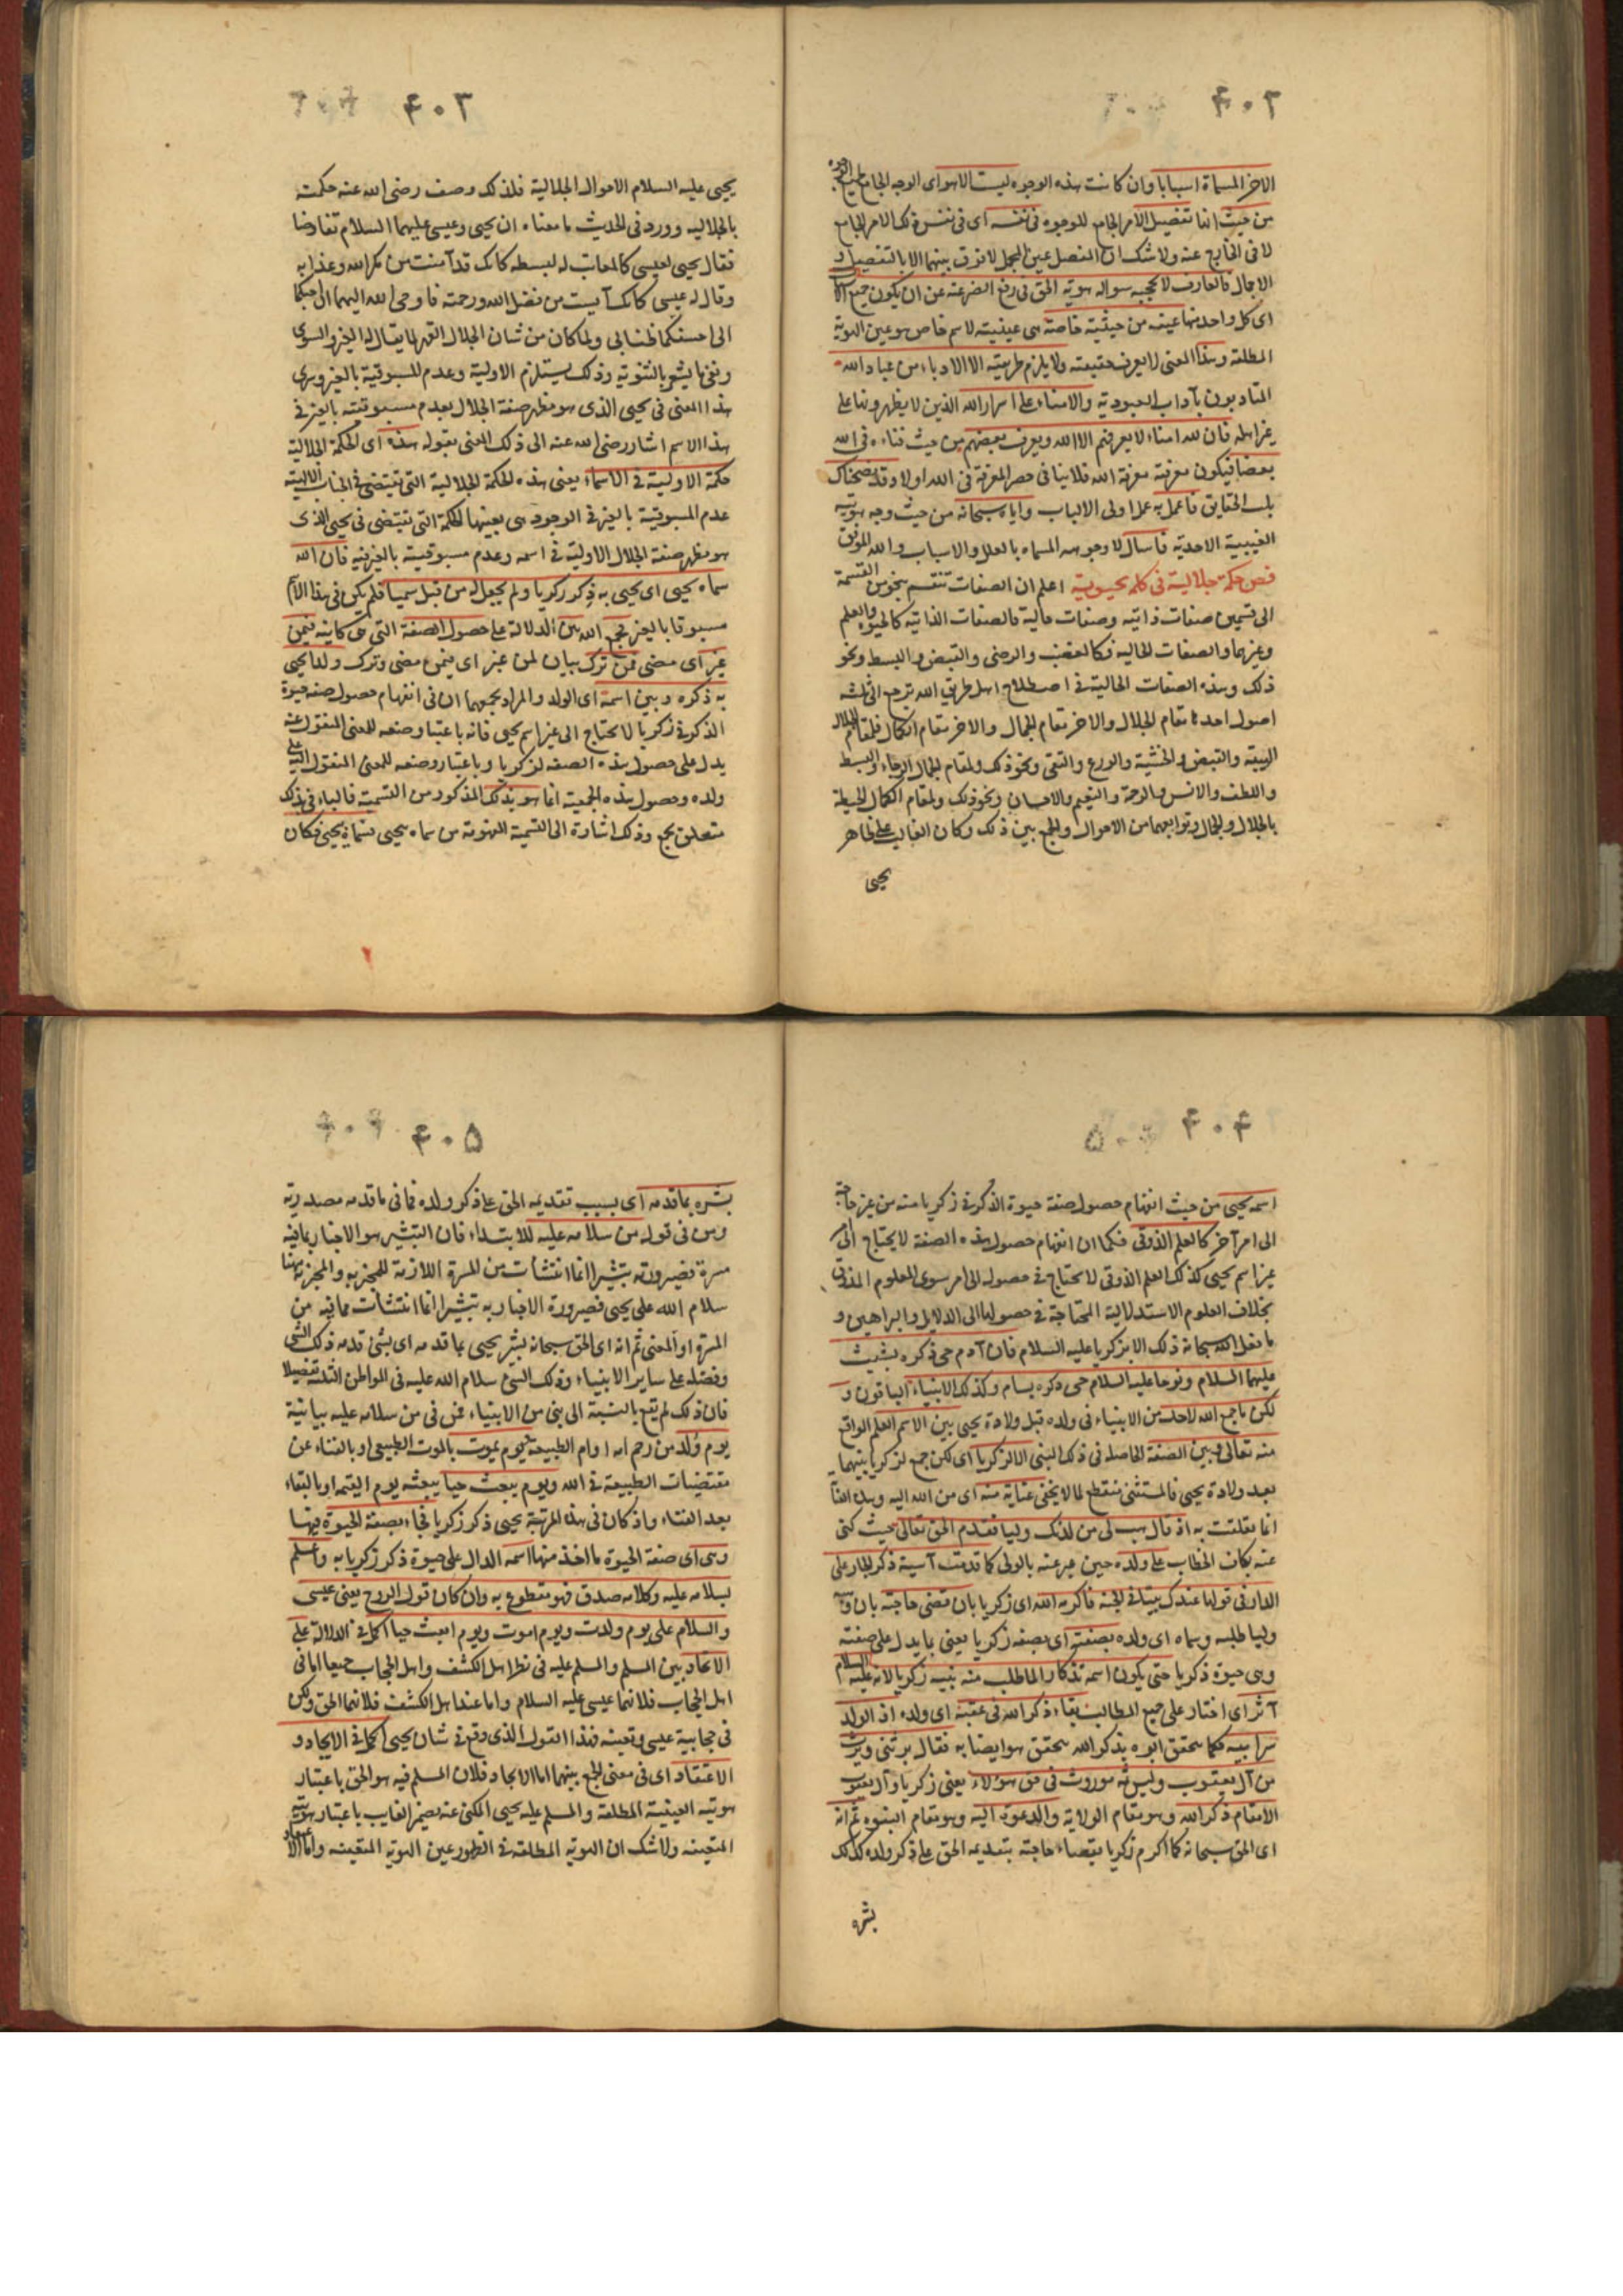 ۴۰۲
الاخر المسماة اسبابا وان كانت هذه الوجوه ليست الا هو اى الوجه الجامع
من حيث انها تفصيل الامر الجامع للوجوه فى نفسه اى فى نفس ذلك الامر الجامع
لا فى الخارج عنه ولا شك ان المفصل عين المجمل لا فرق بينهما الا بالتفصيل و
الاجمال فالعارف لا يحجبه سواله هوية الحق فى رفع الضر عنه عن ان يكون جميع الاسباب
اى كل واحد منها عينه من حيثية خاصة هى عينيته لاسم خاص هو عين الهوية
المطلقة وهذا المعنى لا يعرف حقيقته ولا يلزم طريقته الا الادباء من عباد الله
المتادبون بآداب العبودية والامناء على اسرار الله الذين لا يظهرونها على
غير اهله فان لله امناء لا يعرفهم الا الله ويعرف بعضهم من حيث فناءه فى الله
بعضا فيكون معرفته معرفة الله فلا ينافى حصر المعرفة فى الله اولا وقد نصحناك
بلب الحقايق فاعمل به عمل اولى الالباب واياه سبحانه من حيث وجه هويته
الغيبية الاحدية فاسال لا وجوهه المسماه بالعلل والاسباب والله الموفق
فص حكمة جلالية فى كلمة يحيوية اعلم ان الصفات تنقسم بنحو من القسمة
الى قسمين صفات ذاتية وصفات حالية فالصفات الذاتية كالحيوة والعلم
وغيرهما والصفات الحالية فكالغضب والرضى والقبض والبسط ونحو
ذلك وهذه الصفات الحالية فى اصطلاح اهل طريق الله ترجع الى ثلثه
اصول احدها مقام الجلال والاخر مقام الجمال والاخر مقام الكمال فلمقام الجلال
الهيبة والقبض والخشية والورع والتقى ونحو ذلك ولمقام الجمال الرجاء والبسط
واللطف والانس والرحمة والنعيم والاحسان ونحو ذلك ولمقام الكمال الحيطة
بالجلال والجمال وتوابعهما من الاحوال والجمع بين ذلك وكان الغالب على ظاهر
يحيى
۴۰۳
يحيى عليه السلام الاحوال الجلالية فلذلك وصف رضى الله عنه حكمته
بالجلالية وورد فى الحديث ما معناه ان يحيى وعيسى عليهما السلام تفاوضا
فقال يحيى لعيسى كالمعاتب له لبسطه كانك قد آمنت من مكر الله وعذابه
وقال له عيسى كانك آيست من فضل الله ورحمته فاوحى الله اليهما ان احبكما
الى احسنكما ظنا بى ولما كان من شان الجلال القهر لما يقال له الغير والسوى
ونفى ما يشعر بالثنوية وذلك يستلزم الاولية وعدم المسبوقية بالغير وسرى
هذا المعنى فى يحيى الذى هو مظهر صفة الجلال بعدم مسبوقيته بالغير فى
هذا الاسم اشار رضى الله عنه الى ذلك المعنى بقوله هذه اى الحكمة الجلالية
حكمة الاولية فى الاسماء يعنى هذه الحكمة الجلالية التى تقتضى فى الجناب الالهية
عدم المسبوقية بالغير فى الوجود هى بعينها الحكمة التى تقتضى فى يحيى الذى
هو مظهر صفة الجلال الاولية فى اسمه وعدم مسبوقيته بالغير فيه فان الله
سماه يحيى اى يحيى به ذكر زكريا ولم يجعل له من قبل سميا فلم يكن فى هذا الاسم
مسبوقا بالغير فجمع الله بين الدلالة على حصول الصفة التى هى كاينة فيمن
غبر اى مضى ممن ترك بيان لمن غبر اى فيمن مضى وترك ولدا يحيى
به ذكره وبين اسمه اى الولد والمراد بجمعهما ان فى انفهام حصول صفة حيوة
الذكر فى زكريا لا يحتاج الى غير اسم يحيى فانه باعتبار وضعه للمعنى المنقول عنه
يدل على حصول هذه الصفة لزكريا وباعتبار وضعه للمعنى المنقول اليه على
ولده وحصول هذه الجمعية انما هو بذلك المذكور من التسمية فالباء فى بذلك
متعلق بجمع وذلك اشارة الى التسمية المفهومة من سماه يحيى فسماه يحيى فكان
۴۰۴
اسمه يحيى من حيث انفهام حصول صفة حيوة الذكر فى زكريا منه من غير حاجة
الى امر آخر كالعلم الذوقى فكما ان انفهام حصول هذه الصفة لا يحتاج الى
غير اسم يحيى كذلك العلم الذوقى لا يحتاج فى حصوله الى امر سوى المعلوم المذوق
بخلاف العلوم الاستدلالية المحتاجة فى حصولها الى الدلايل والبراهين و
ما فعل الله سبحانه ذلك الا بزكريا عليه السلام فان آدم حى ذكره بشيث
عليهما السلام ونوحا عليه السلام حى ذكره بسام وكذلك الانبياء الباقون و
لكن ما جمع الله لاحد من الانبياء فى ولده قبل ولادة يحيى بين الاسم العلم الواقع
منه تعالى وبين الصفة الحاصلة فى ذلك النبى الا لزكريا اى لكن جمع لزكريا بينهما
بعد ولادة يحيى فالمستثنى منقطع لما لا يخفى عناية منه اى من الله اليه وهذه العناية
انما تعلقت به اذ قال هب لى من لدنك وليا فقدم الحق تعالى حيث كنى
عنه بكاف الخطاب على ولده حين عبر عنه بالولى كما قدمت آسية ذكر الجار على
الدار فى قولها عندك بيتا فى الجنة فاكرمه الله اى زكريا بان قضى حاجته بان وهبه
وليا طلبه وسماه اى ولده بصفته اى بصفة زكريا يعنى بما يدل على صفته
وهى حيوة ذكريا حتى يكون اسمه تذكارا لما طلب منه نبيه زكريا لانه عليه السلام
آثر اى اختار على جميع المطالب بقاء ذكر الله فى عقبه اى ولده اذ الولد
سر ابيه فكما تحقق ابوه بذكر الله تحقق هو ايضا به فقال يرثنى ويرث
من آل يعقوب وليس ثم موروث فى حق هؤلاء يعنى زكريا وآل يعقوب
الا مقام ذكر الله وهو مقام الولاية والدعوة اليه وهو مقام النبوه ثم انه
اى الحق سبحانه كما اكرم زكريا بقضاء حاجته بتقديمه الحق على ذكر ولده كذلك
بشره
۴۰۵
بشره بما قدمه اى بسبب تقديمه الحق على ذكر ولده فما فى ما قدمه مصدرية
ومن فى قوله من سلامه عليه للابتداء فان التبشير هو الاخبار بما فيه
مسرة فصيرورته تبشيرا انما انتشأت من المسرة اللازمة للمخبر به والمخبر به ههنا
سلام الله على يحيى فصيرورة الاخبار به تبشيرا انما انتشأت مما فيه من
المسرة او المعنى ثم انه اى الحق سبحانه بشر يحيى بما قدمه اى بشئ قدمه ذلك الشى
وفضله على ساير الانبياء وذلك الشئ سلام الله عليه فى المواطن الثلثة تفضيلا
فان ذلك لم يقع بالنسبة الى نبى من الانبياء فمن فى من سلامه عليه بيانية
يوم ولد من رحم امه او ام الطبيعة ويوم يموت بالموت الطبيعى او بالفناء عن
مقتضيات الطبيعة فى الله ويوم يبعث حيا يبعثه يوم القيمة او بالبقاء
بعد الفناء واذ كان فى هذه المرتبة يحيى ذكر زكريا فجاء بصفة الحيوة فيها
وهى اى صفة الحيوة ما اخذ منها اسمه الدال على حيوة ذكر زكريا به واعلم
بسلامه عليه وكلامه صدق فهو مقطوع به وان كان قول الروح يعنى عيسى
والسلام على يوم ولدت ويوم اموت ويوم ابعث حيا اكمل فى الدلالة على
الاتحاد بين المسلم والمسلم عليه فى نظر اهل الكشف واهل الحجاب جميعا اما فى
اهل الحجاب فلانهما عيسى عليه السلام واما عند اهل الكشف فلانهما الحق ولكن
فى حجابية عيسى وتعينه فهذا القول الذى وقع فى شان يحيى اكمل فى الاتحاد و
الاعتقاد اى فى معنى الجمع بينهما اما الاتحاد فلان المسلم فيه هو الحق باعتبار
هويته الغيبية المطلقة والمسلم عليه يحيى المكنى عنه بضمير الغايب باعتبار هويته
المتعينه ولا شك ان الهوية المطلقة فى الظهور عين الهوية المتعينه واما الاعتقاد